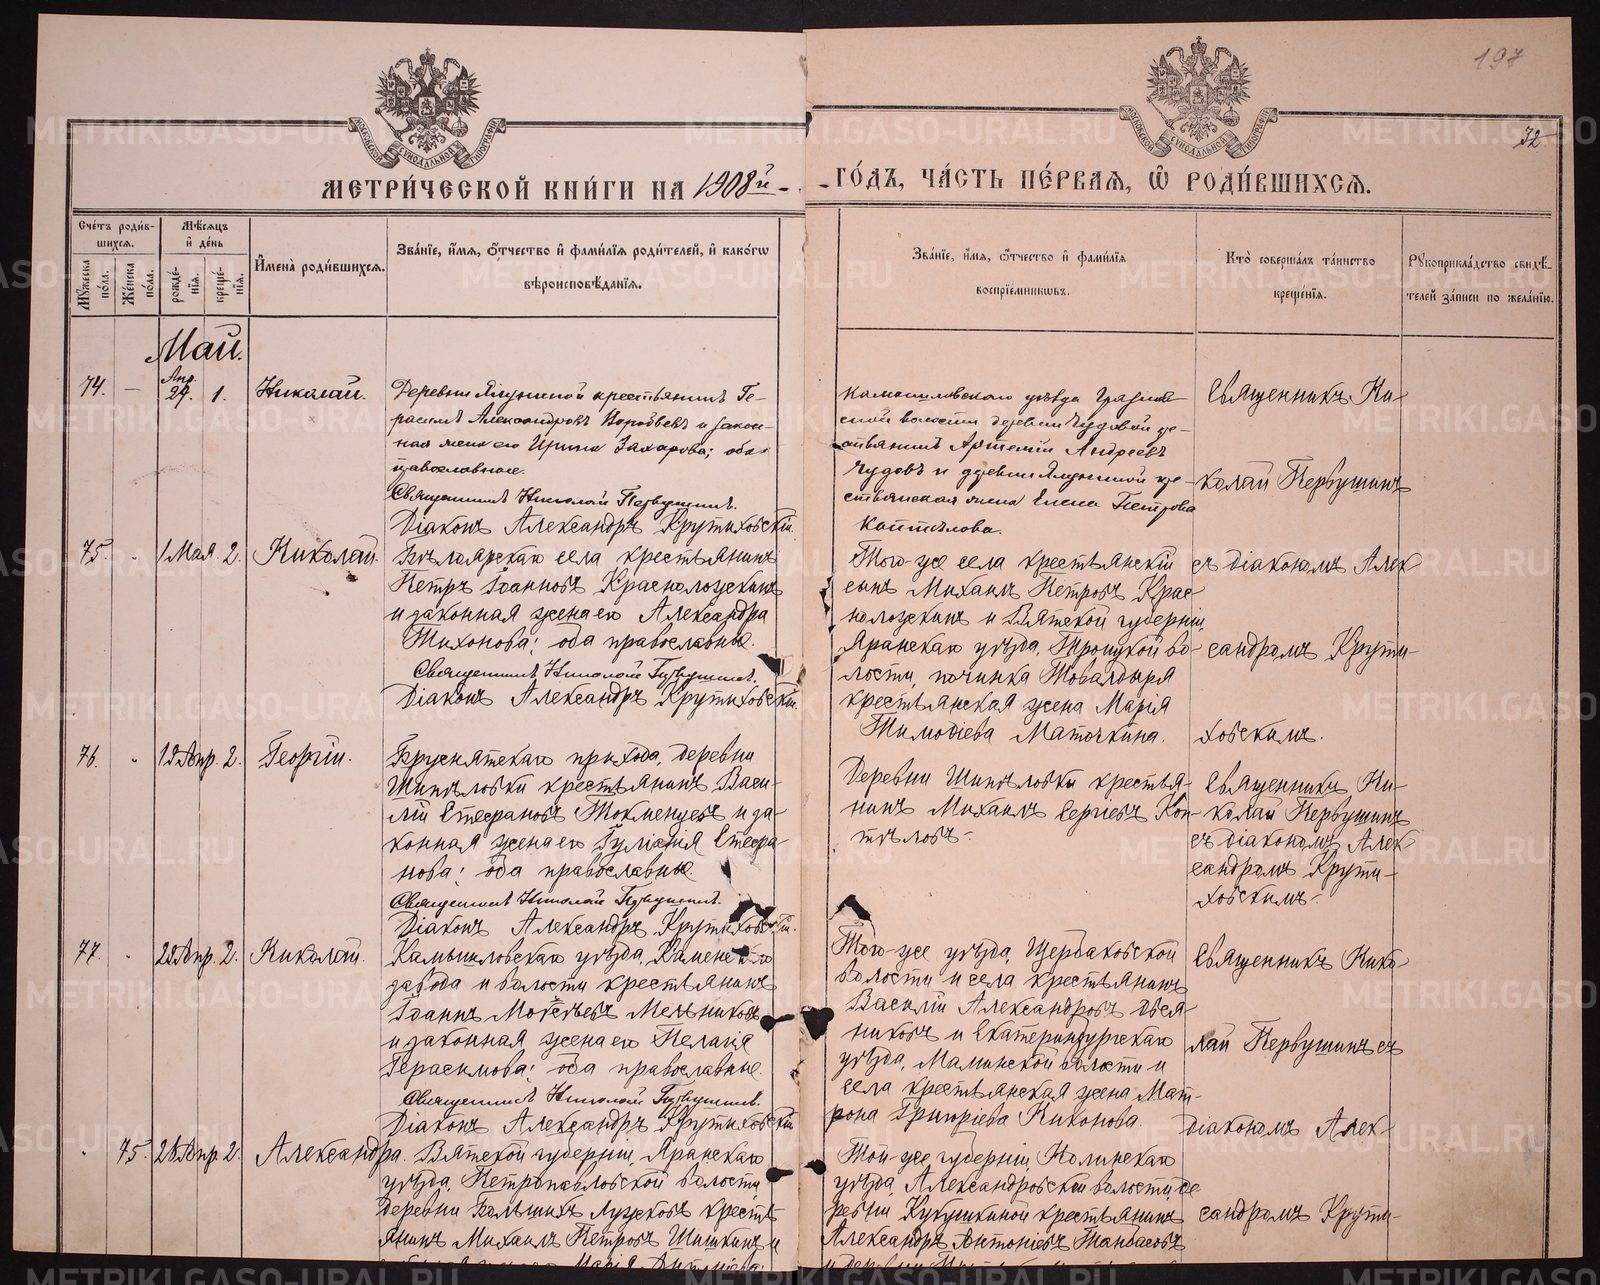 197
72
МЕТРИ́ЧЕСКОЙ КНИ́ГИ НА 1908й
ГО́ДЪ, ЧА́СТЬ ПЕ́РВАЯ, Ѡ РОДИ́ВШИХСЯ.
Сче́тъ роди́в-
шихся.
Му́жеска по́ла.
Же́нска по́ла.
Мѣ́сяцъ
и де́нь
рожде́-
нїя.
креще́-
нїя.
Имена̀ роди́вшихся.
Зва́нїе, и́мя, о́тчество и фами́лїя роди́телей, и како́гѡ
вѣроисповѣ́данїя.
Зва́нїе, и́мя, о́тчество и фами́лїя
воспрїе́мниковъ.
Кто̀ соверша́лъ та́инство
креще́нїя.
Рукоприкла́дство свидѣ́-
телей за́писи по жела́нїю.
Май.
74. — Апр. 29. 1. Николай.
Деревни крестьянинъ Ге-
расимъ Александровъ Воробьевъ и закон-
ная жена его Ирина Захарова; оба
православные.
Священникъ Николай Первушинъ.
Діаконъ Александръ Крутиховскій.
Камышловскаго уѣзда
волости деревни Чудовой кре-
стьянинъ Артемій Андреевъ
Чудовъ и деревни кре-
стьянская жена Елена Петрова
Коптѣлова.
Священникъ Ни-
колай Первушинъ
75. 1 Мая 2. Николай.
Бѣлоярскаго села крестьянинъ
Петръ Іоанновъ Краснолобскинъ
и законная жена его Александра
Тихонова; оба православные.
Священникъ Николай Первушинъ.
Діаконъ Александръ Крутиховскій.
Того-же села крестьянскій
сынъ Михаилъ Петровъ Крас-
и Вятской губерніи,
Яранскаго уѣзда, Троицкой во-
лости, починка
крестьянская жена Марія
Тимофіева Маточкина.
съ діакономъ Алек
сандромъ Крути-
ховскимъ.
76. 12 Апр. 2. Георгій.
Бруснятскаго прихода, деревни
Шипѣловки крестьянинъ Васи-
лій Стефановъ Токменцевъ и за-
конная жена его Іулианія Стефа-
нова; оба православные.
Священникъ Николай Первушинъ.
Діаконъ Александръ Крутиховскій.
Деревни Шипѣловки крестья-
нинъ Михаилъ Сергіевъ Коп-
тѣловъ.
Священникъ Ни-
колай Первушинъ
съ діакономъ Алек
сандромъ Крути-
ховскимъ.
77. 22 Апр. 2. Николай.
Камышловскаго уѣзда, Каменскаго
завода и волости крестьянинъ
Іоаннъ Моѵсеевъ Мельниковъ
и законная жена его Пелагія
Герасимова; оба православные.
Священникъ Николай Первушинъ.
Діаконъ Александръ Крутиховскій
Того-же уѣзда, Щербаковской
волости и села крестьянинъ
Василій Александровъ Овся-
никовъ и Екатеринбургскаго
уѣзда, Маминской волости и
села крестьянская жена Мат-
рона Григоріева Никонова.
Священникъ Нико-
лай Первушинъ съ
діакономъ Алек-
75. 28 Апр. 2. Александра.
Вятской губерніи, Яранскаго
уѣзда, Петропавловской волости
деревни Большихъ крестъ
янинъ Михаилъ Петровъ Шишкинъ и
Той-же губерніи, Нолинскаго
уѣзда, Александровской волости, де
ревни Кукушкиной крестьянинъ
Александръ Антоніевъ
сандромъ Крути-
METRIKI.GASO-URAL.RU